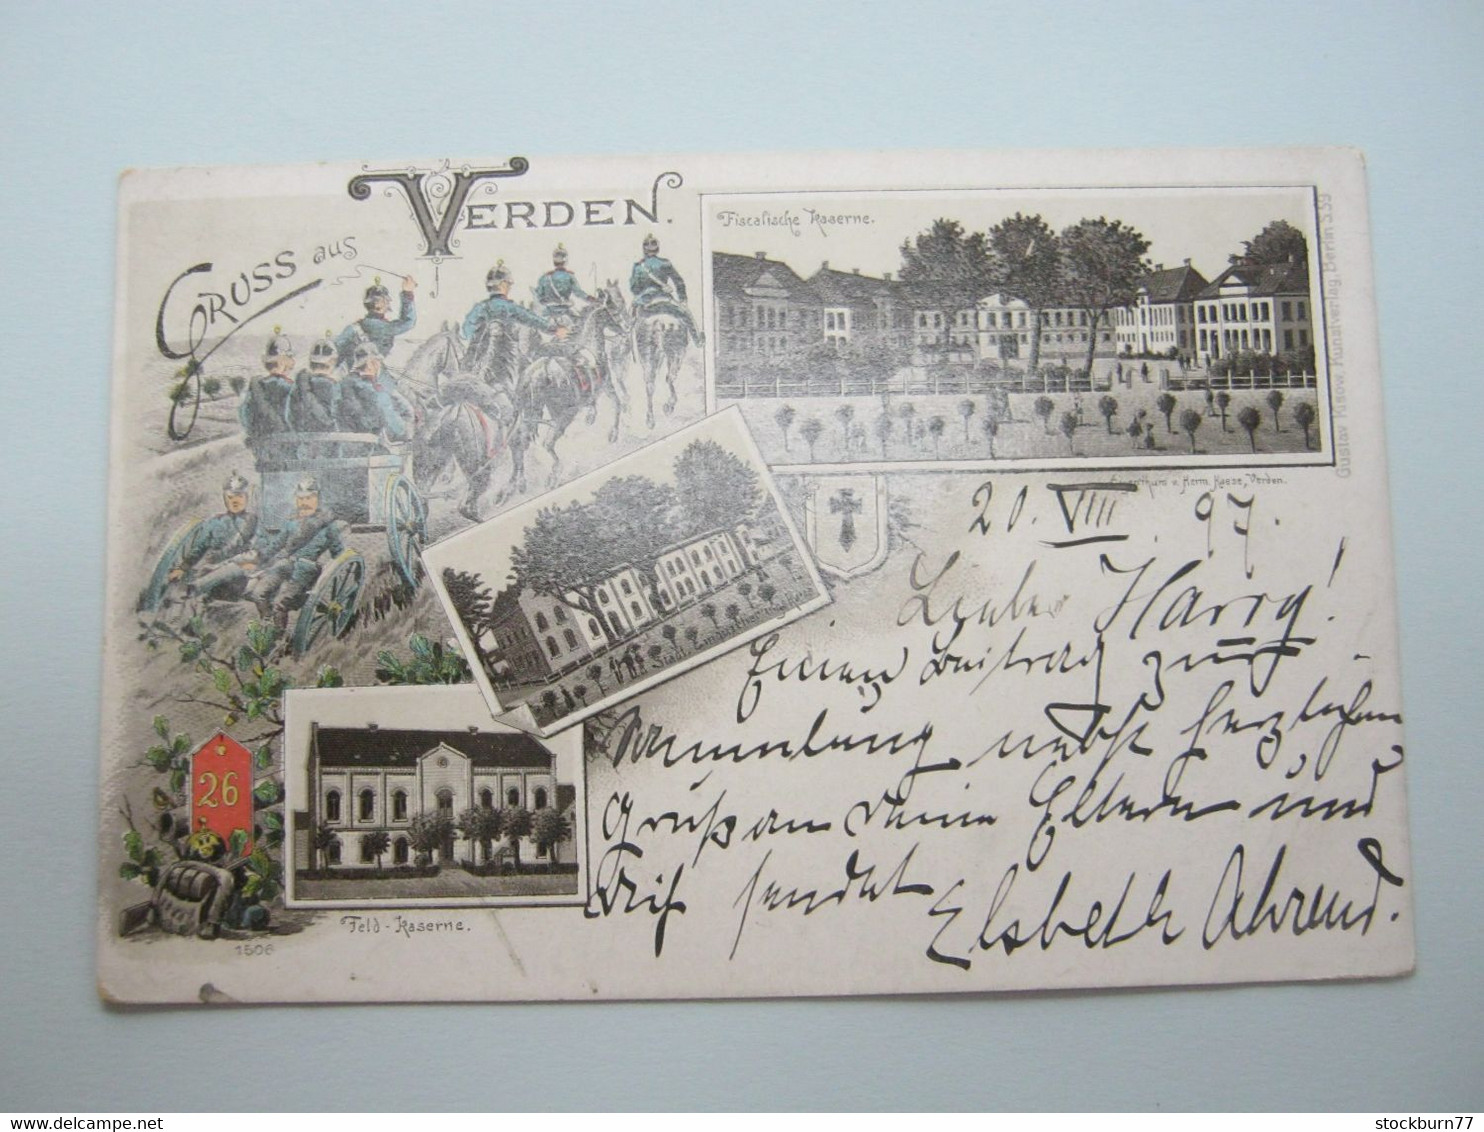 GRUSS aus VERDEN.
Fiscalische Kaserne.
Gustav Kasow, Kunstverlag, Berlin S.59
Eigenthum v. Herm. Kasse, Verden.
26
Feld-Kaserne.
1506
20. VIII. 97.
Lieber Harry!
Einen Beitrag zur
Sammlung nebst herzlichem
Gruß an Deine Eltern und
Dich sendet Elsbeth Ahrend.
www.delcampe.net
stockburn77